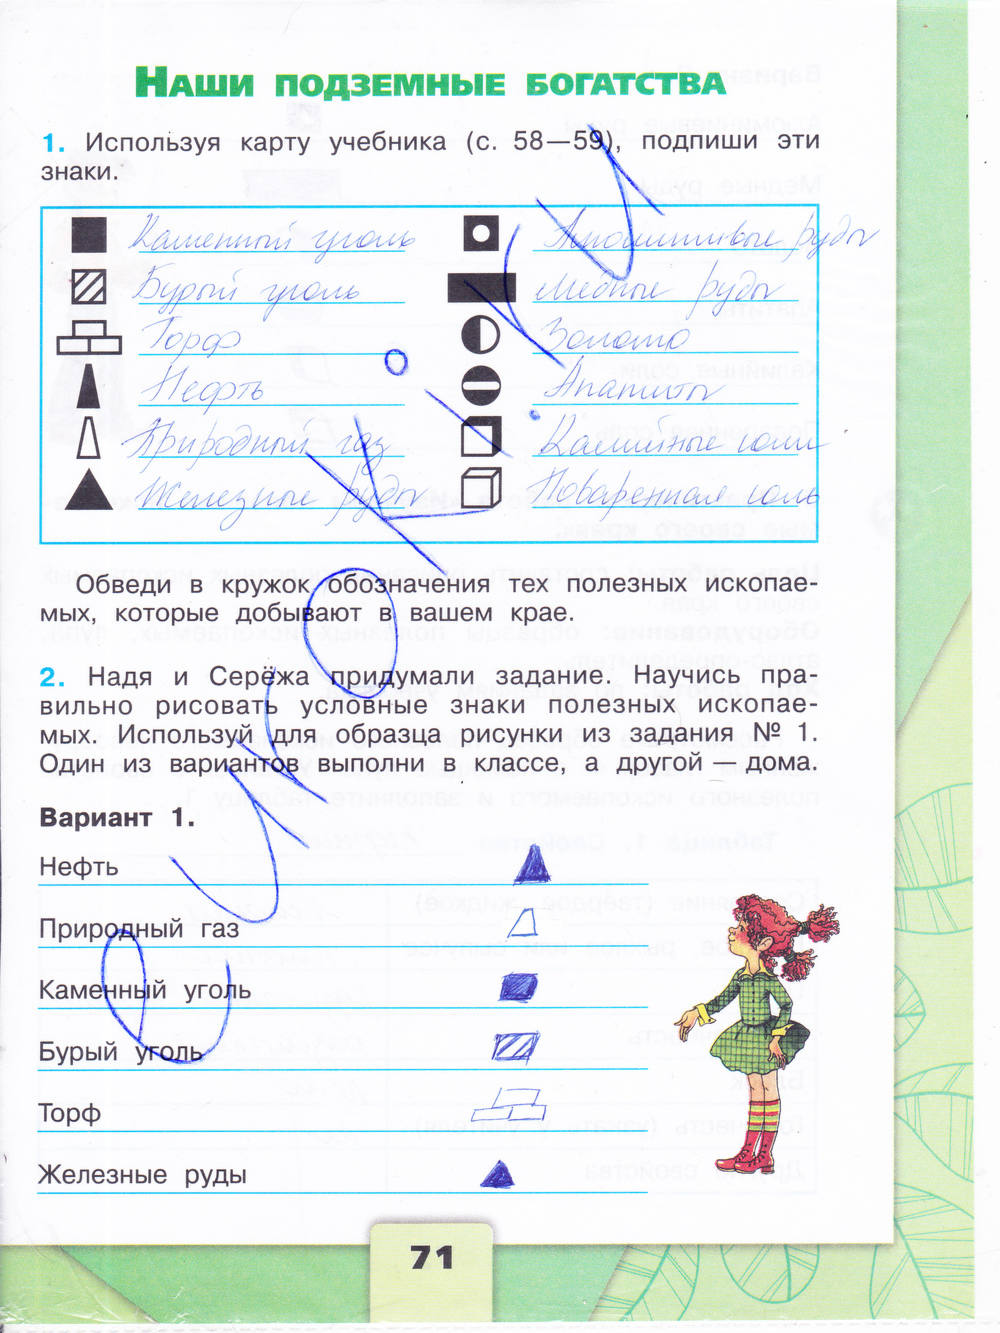 Наши подземные богатства
1. Используя карту учебника (с. 58—59), подпиши эти
знаки.
Каменный уголь
Алюминивые руды
Бурый уголь
Медные руды
Торф
Золото
Нефть
Апатиты
Природный газ
Калийные соли
Железные руды
Поваренная соль
Обведи в кружок обозначения тех полезных ископае-
мых, которые добывают в вашем крае.
2. Надя и Серёжа придумали задание. Научись пра-
вильно рисовать условные знаки полезных ископае-
мых. Используй для образца рисунки из задания № 1.
Один из вариантов выполни в классе, а другой — дома.
Вариант 1.
Нефть
Природный газ
Каменный уголь
Бурый уголь
Торф
Железные руды
71